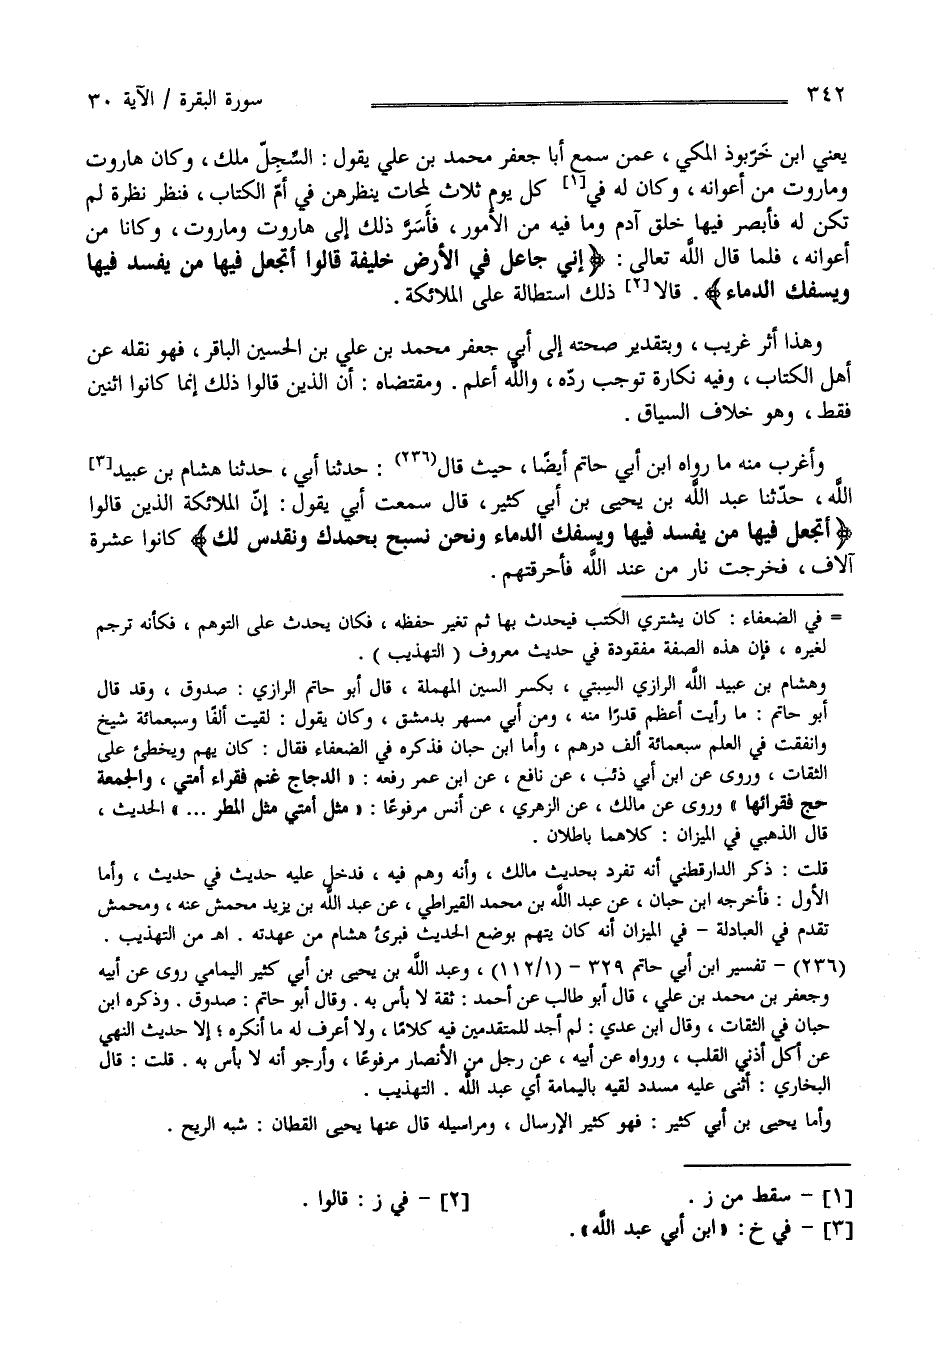 ٣٤٢ سورة البقرة / الآية ٣٠
يعني ابن خَرّبوذ المكي ، عمن سمع أبا جعفر محمد بن علي يقول : السِّجِلّ ملك ، وكان هاروت
وماروت من أعوانه ، وكان له في[١] كل يوم ثلاث لمحات ينظرهن في أمّ الكتاب ، فنظر نظرة لم
تكن له فأبصر فيها خلق آدم وما فيه من الأمور ، فأَسَرَّ ذلك إلى هاروت وماروت ، وكانا من
أعوانه ، فلما قال اللَّه تعالى : ﴿إني جاعل في الأرض خليفة قالوا أتجعل فيها من يفسد فيها
ويسفك الدماء﴾ . قالا[٢] ذلك استطالة على الملائكة .
وهذا أثر غريب ، وبتقدير صحته إلى أبي جعفر محمد بن علي بن الحسين الباقر ، فهو نقله عن
أهل الكتاب ، وفيه نكارة توجب ردّه ، واللَّه أعلم . ومقتضاه : أن الذين قالوا ذلك إنما كانوا اثنين
فقط ، وهو خلاف السياق .
وأغرب منه ما رواه ابن أبي حاتم أيضًا ، حيث قال(٢٣٦) : حدثنا أبي ، حدثنا هشام بن عبيد[٣]
اللَّه ، حدّثنا عبد اللَّه بن يحيى بن أبي كثير ، قال سمعت أبي يقول : إنّ الملائكة الذين قالوا
﴿أتجعل فيها من يفسد فيها ويسفك الدماء ونحن نسبح بحمدك ونقدس لك﴾ كانوا عشرة
آلاف ، فخرجت نار من عند اللَّه فأحرقتهم .
= في الضعفاء : كان يشتري الكتب فيحدث بها ثم تغير حفظه ، فكان يحدث على التوهم ، فكأنه ترجم
لغيره ، فإن هذه الصفة مفقودة في حديث معروف ( التهذيب ) .
وهشام بن عبيد اللَّه الرازي السِبتي ، بكسر السين المهملة ، قال أبو حاتم الرازي : صدوق ، وقد قال
أبو حاتم : ما رأيت أعظم قدرًا منه ، ومن أبي مسهر بدمشق ، وكان يقول : لقيت ألفًا وسبعمائة شيخ
وانفقت في العلم سبعمائة ألف درهم ، وأما ابن حبان فذكره في الضعفاء فقال : كان يهم ويخطئ على
الثقات ، وروى عن ابن أبي ذئب ، عن نافع ، عن ابن عمر رفعه : « الدجاج غنم فقراء أمتي ، والجمعة
حج فقرائها » وروى عن مالك ، عن الزهري ، عن أنس مرفوعًا : « مثل أمتي مثل المطر ... » الحديث ،
قال الذهبي في الميزان : كلاهما باطلان .
قلت : ذكر الدارقطني أنه تفرد بحديث مالك ، وأنه وهم فيه ، فدخل عليه حديث في حديث ، وأما
الأول : فأخرجه ابن حبان ، عن عبد اللَّه بن محمد القيراطي ، عن عبد اللَّه بن يزيد محمش عنه ، ومحمش
تقدم في العبادلة – في الميزان أنه كان يتهم بوضع الحديث فبرئ هشام من عهدته . اهـ من التهذيب .
(٢٣٦) – تفسير ابن أبي حاتم ٣٢٩ – (١١٢/١) ، وعبد اللَّه بن يحيى بن أبي كثير اليمامي روى عن أبيه
وجعفر بن محمد بن علي ، قال أبو طالب عن أحمد : ثقة لا بأس به . وقال أبو حاتم : صدوق . وذكره ابن
حبان في الثقات ، وقال ابن عدي : لم أجد للمتقدمين فيه كلامًا ، ولا أعرف له ما أنكره ؛ إلا حديث النهي
عن أكل أذني القلب ، ورواه عن أبيه ، عن رجل من الأنصار مرفوعًا ، وأرجو أنه لا بأس به . قلت : قال
البخاري : أثنى عليه مسدد لقيه باليمامة أي عبد اللَّه . التهذيب .
وأما يحيى بن أبي كثير : فهو كثير الإرسال ، ومراسيله قال عنها يحيى القطان : شبه الريح .
[١] – سقط من ز . [٢] – في ز : قالوا .
[٣] – في خ : « ابن أبي عبد اللَّه» .